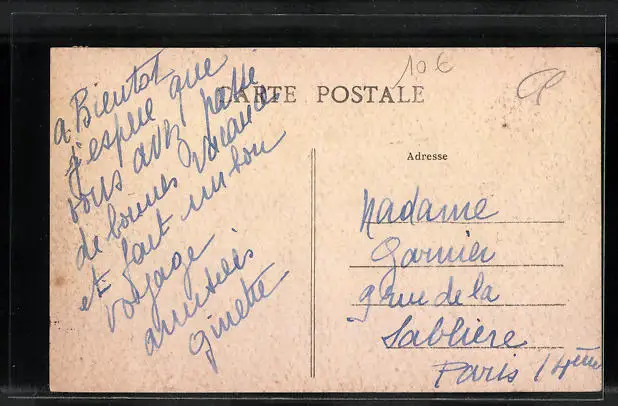 10 €
CARTE POSTALE
a Bientot
j'espère que
vous avez passé
de bonnes vacances
et fait un bon
voyage
amitiés
Ginette
Adresse
Madame
Garnier
9 rue de la
Sablière
Paris 14ème